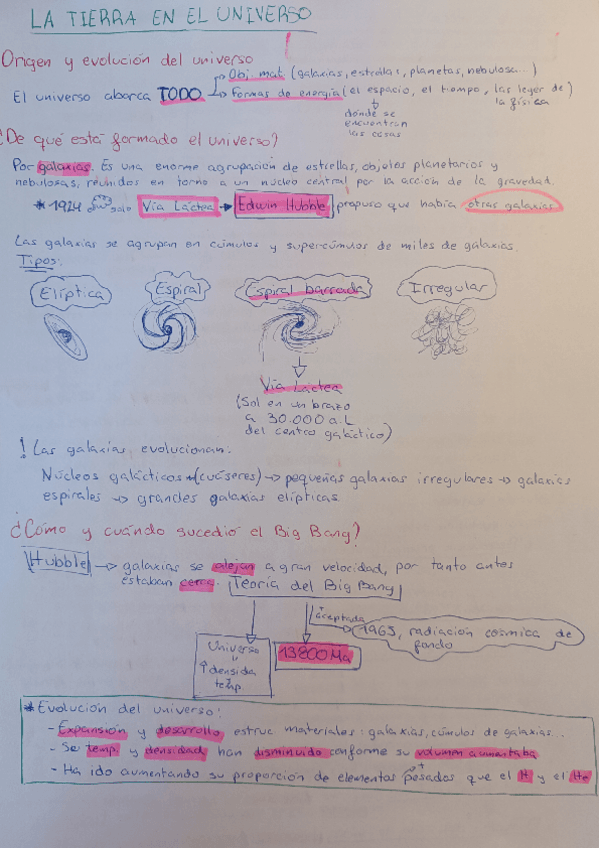 LA TIERRA EN EL UNIVERSO
Origen y evolución del universo
El universo abarca TODO
Obj. mat (galaxias, estrellas, planetas, nebulosa...)
Formas de energía (el espacio, el tiempo, las leyes de la física)
dónde se
encuentran
las cosas
¿De qué está formado el universo?
Por galaxias. Es una enorme agrupación de estrellas, objetos planetarios y
nebulosas, reunidos en torno a un núcleo central por la acción de la gravedad.
* 1924 solo Vía Láctea → Edwin Hubble propuso que había otras galaxias
Las galaxias se agrupan en cúmulos y supercúmulos de miles de galaxias.
Tipos:
Elíptica Espiral Espiral barrada Irregular
Vía Láctea
(Sol en un brazo
a 30.000 a.L
del centro galáctico)
! Las galaxias evolucionan:
Núcleos galácticos (cuáseres) → pequeñas galaxias irregulares → galaxias
espirales → grandes galaxias elípticas.
¿Cómo y cuándo sucedió el Big Bang?
Hubble → galaxias se alejan a gran velocidad, por tanto antes
estaban cerca. Teoría del Big Bang
aceptada
1965, radiación cósmica de
fondo
Universo
↑ densida
temp.
13800 Ma
* Evolución del universo:
- Expansión y desarrollo estruc materiales: galaxias, cúmulos de galaxias...
- Se temp. y densidad han disminuido conforme su volumen aumentaba
- Ha ido aumentando su proporción de elementos + pesados que el H y el He